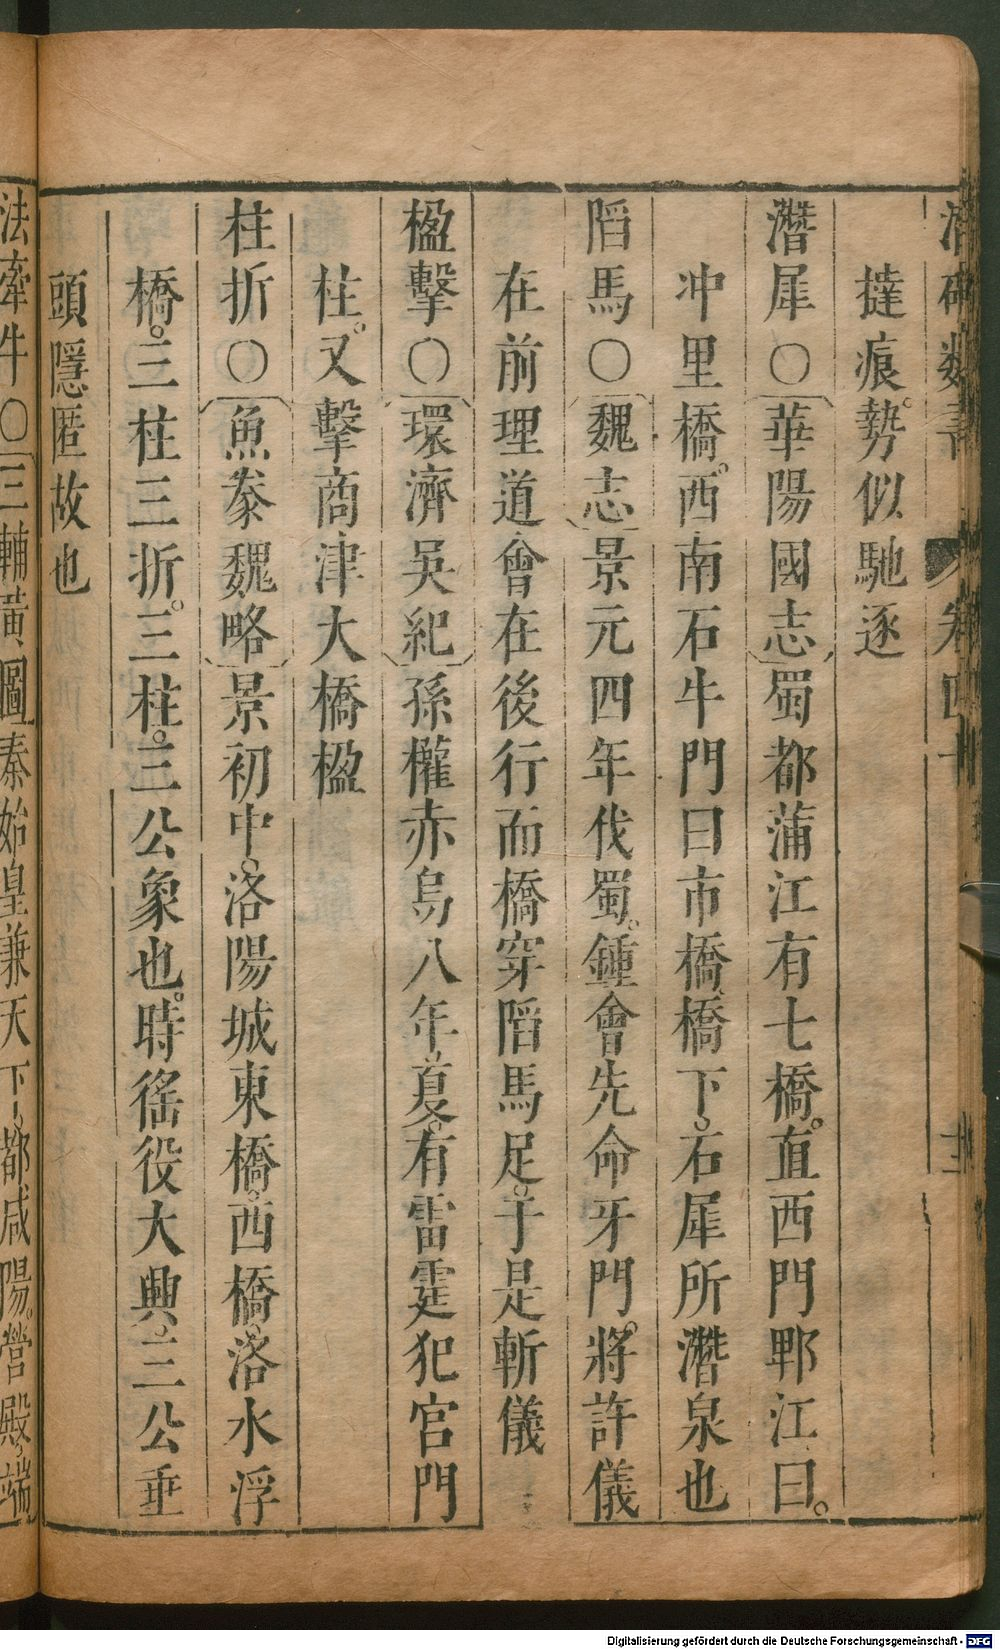 潛確類書 卷四十
撻痕勢似馳逐
潛犀○華陽國志蜀都蒲江有七橋。直西門郫江曰。
冲里橋。西南石牛門曰市橋、橋下。石犀所潛泉也
陷馬○魏志景元四年伐蜀。鍾會先命牙門。將許儀
在前理道會在後行而橋穿陷馬足。于是斬儀
楹擊○環濟吳紀孫權赤烏八年夏。有雷霆犯宮門
柱。又擊商津大橋楹
柱折○魚豢魏略景初中。洛陽城東橋。西橋。洛水浮
橋。三柱三折。三柱。三公象也。時徭役大興、三公垂
頭隱匿故也
法牽牛○三輔黃圖秦始皇兼天下、都咸陽。營殿、端
Digitalisierung gefördert durch die Deutsche Forschungsgemeinschaft - DFG